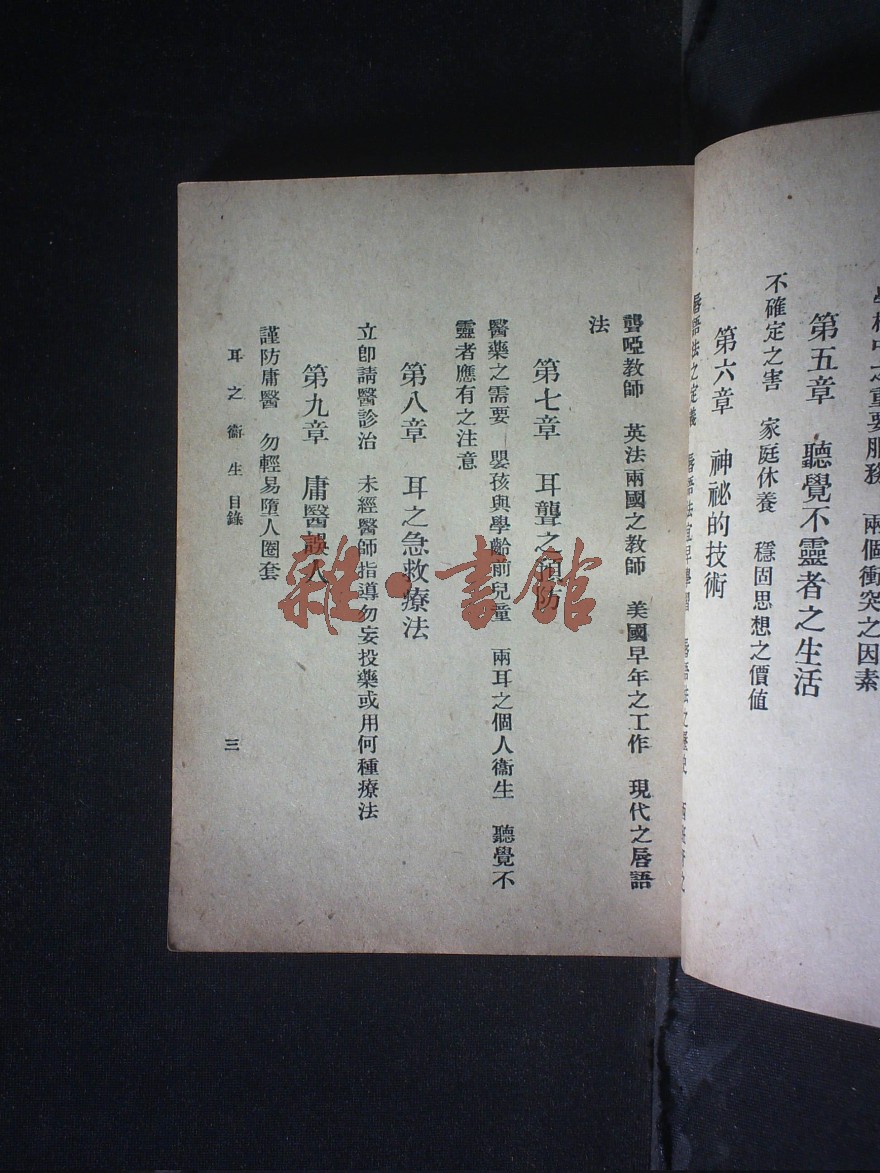 學校中之重要服務　兩個衝突之因素
第五章　聽覺不靈者之生活
不確定之害　家庭休養　穩固思想之價值
第六章　神祕的技術
唇語法之定義　唇語法宜早學習　唇語法之歷史
聾啞教師　英法兩國之教師　美國早年之工作　現代之唇語
法
第七章　耳聾之預防
醫藥之需要　嬰孩與學齡前兒童　兩耳之個人衞生　聽覺不
靈者應有之注意
第八章　耳之急救療法
立卽請醫診治　未經醫師指導勿妄投藥或用何種療法
第九章　庸醫誤人
謹防庸醫　勿輕易墮人圈套
耳之衞生　目錄
三
雜·書館